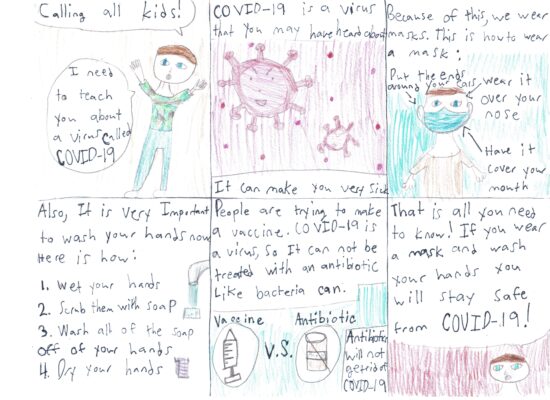 Calling all kids!
I need
to teach
you about
a virus called
COVID-19
COVID-19 is a virus
that you may have heard about
It can make you very sick
Because of this, we wear
masks. This is how to wear
a mask:
Put the ends
around your ears
wear it
over your
nose
Have it
cover your
mouth
Also, It is very Important
to wash your hands now
Here is how:
1. Wet your hands
2. Scrub them with soap
3. Wash all of the soap
off of your hands
4. Dry your hands
People are trying to make
a vaccine. COVID-19 is
a virus, so It can not be
treated with an antibiotic
Like bacteria can.
Vaccine
V.S.
Antibiotic
Antibiotics
will not
get rid of
COVID-19
That is all you need
to know! If you wear
a mask and wash
your hands you
will stay safe
from COVID-19!